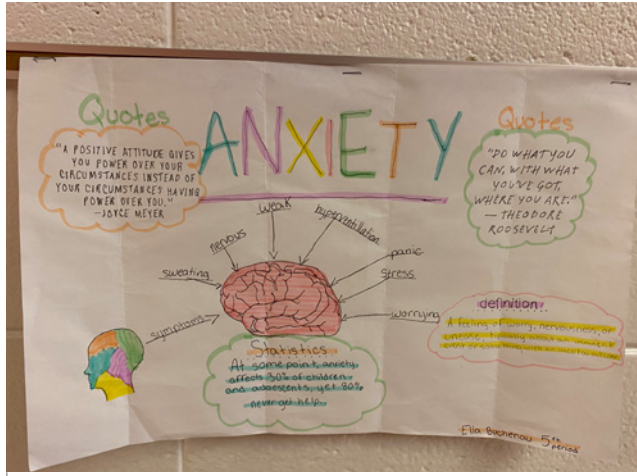 Quotes
ANXIETY
Quotes
"A POSITIVE ATTITUDE GIVES
YOU POWER OVER YOUR
CIRCUMSTANCES INSTEAD OF
YOUR CIRCUMSTANCES HAVING
POWER OVER YOU."
—JOYCE MEYER
"DO WHAT YOU
CAN, WITH WHAT
YOU'VE GOT,
WHERE YOU ARE."
— THEODORE
ROOSEVELT
weak
hyperventillation
nervous
panic
sweating
stress
symptoms
worrying
definition
A feeling of worry, nervousness, or
Statistics
At some point, anxiety
affects 30% of children
and adolescents, yet 80%
never get help.
Ella 5th
period